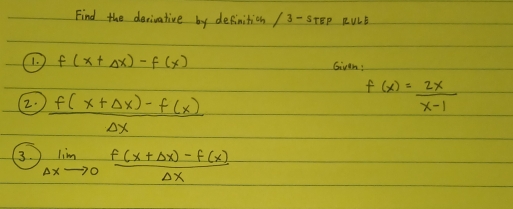 Find the derivative by definition / 3-STEP RULE
1. f(x+Δx)-f(x)
Given:
f(x) = 2x
x-1
2. f(x+Δx)-f(x)
Δx
3. lim f(x+Δx)-f(x)
Δx→0 Δx